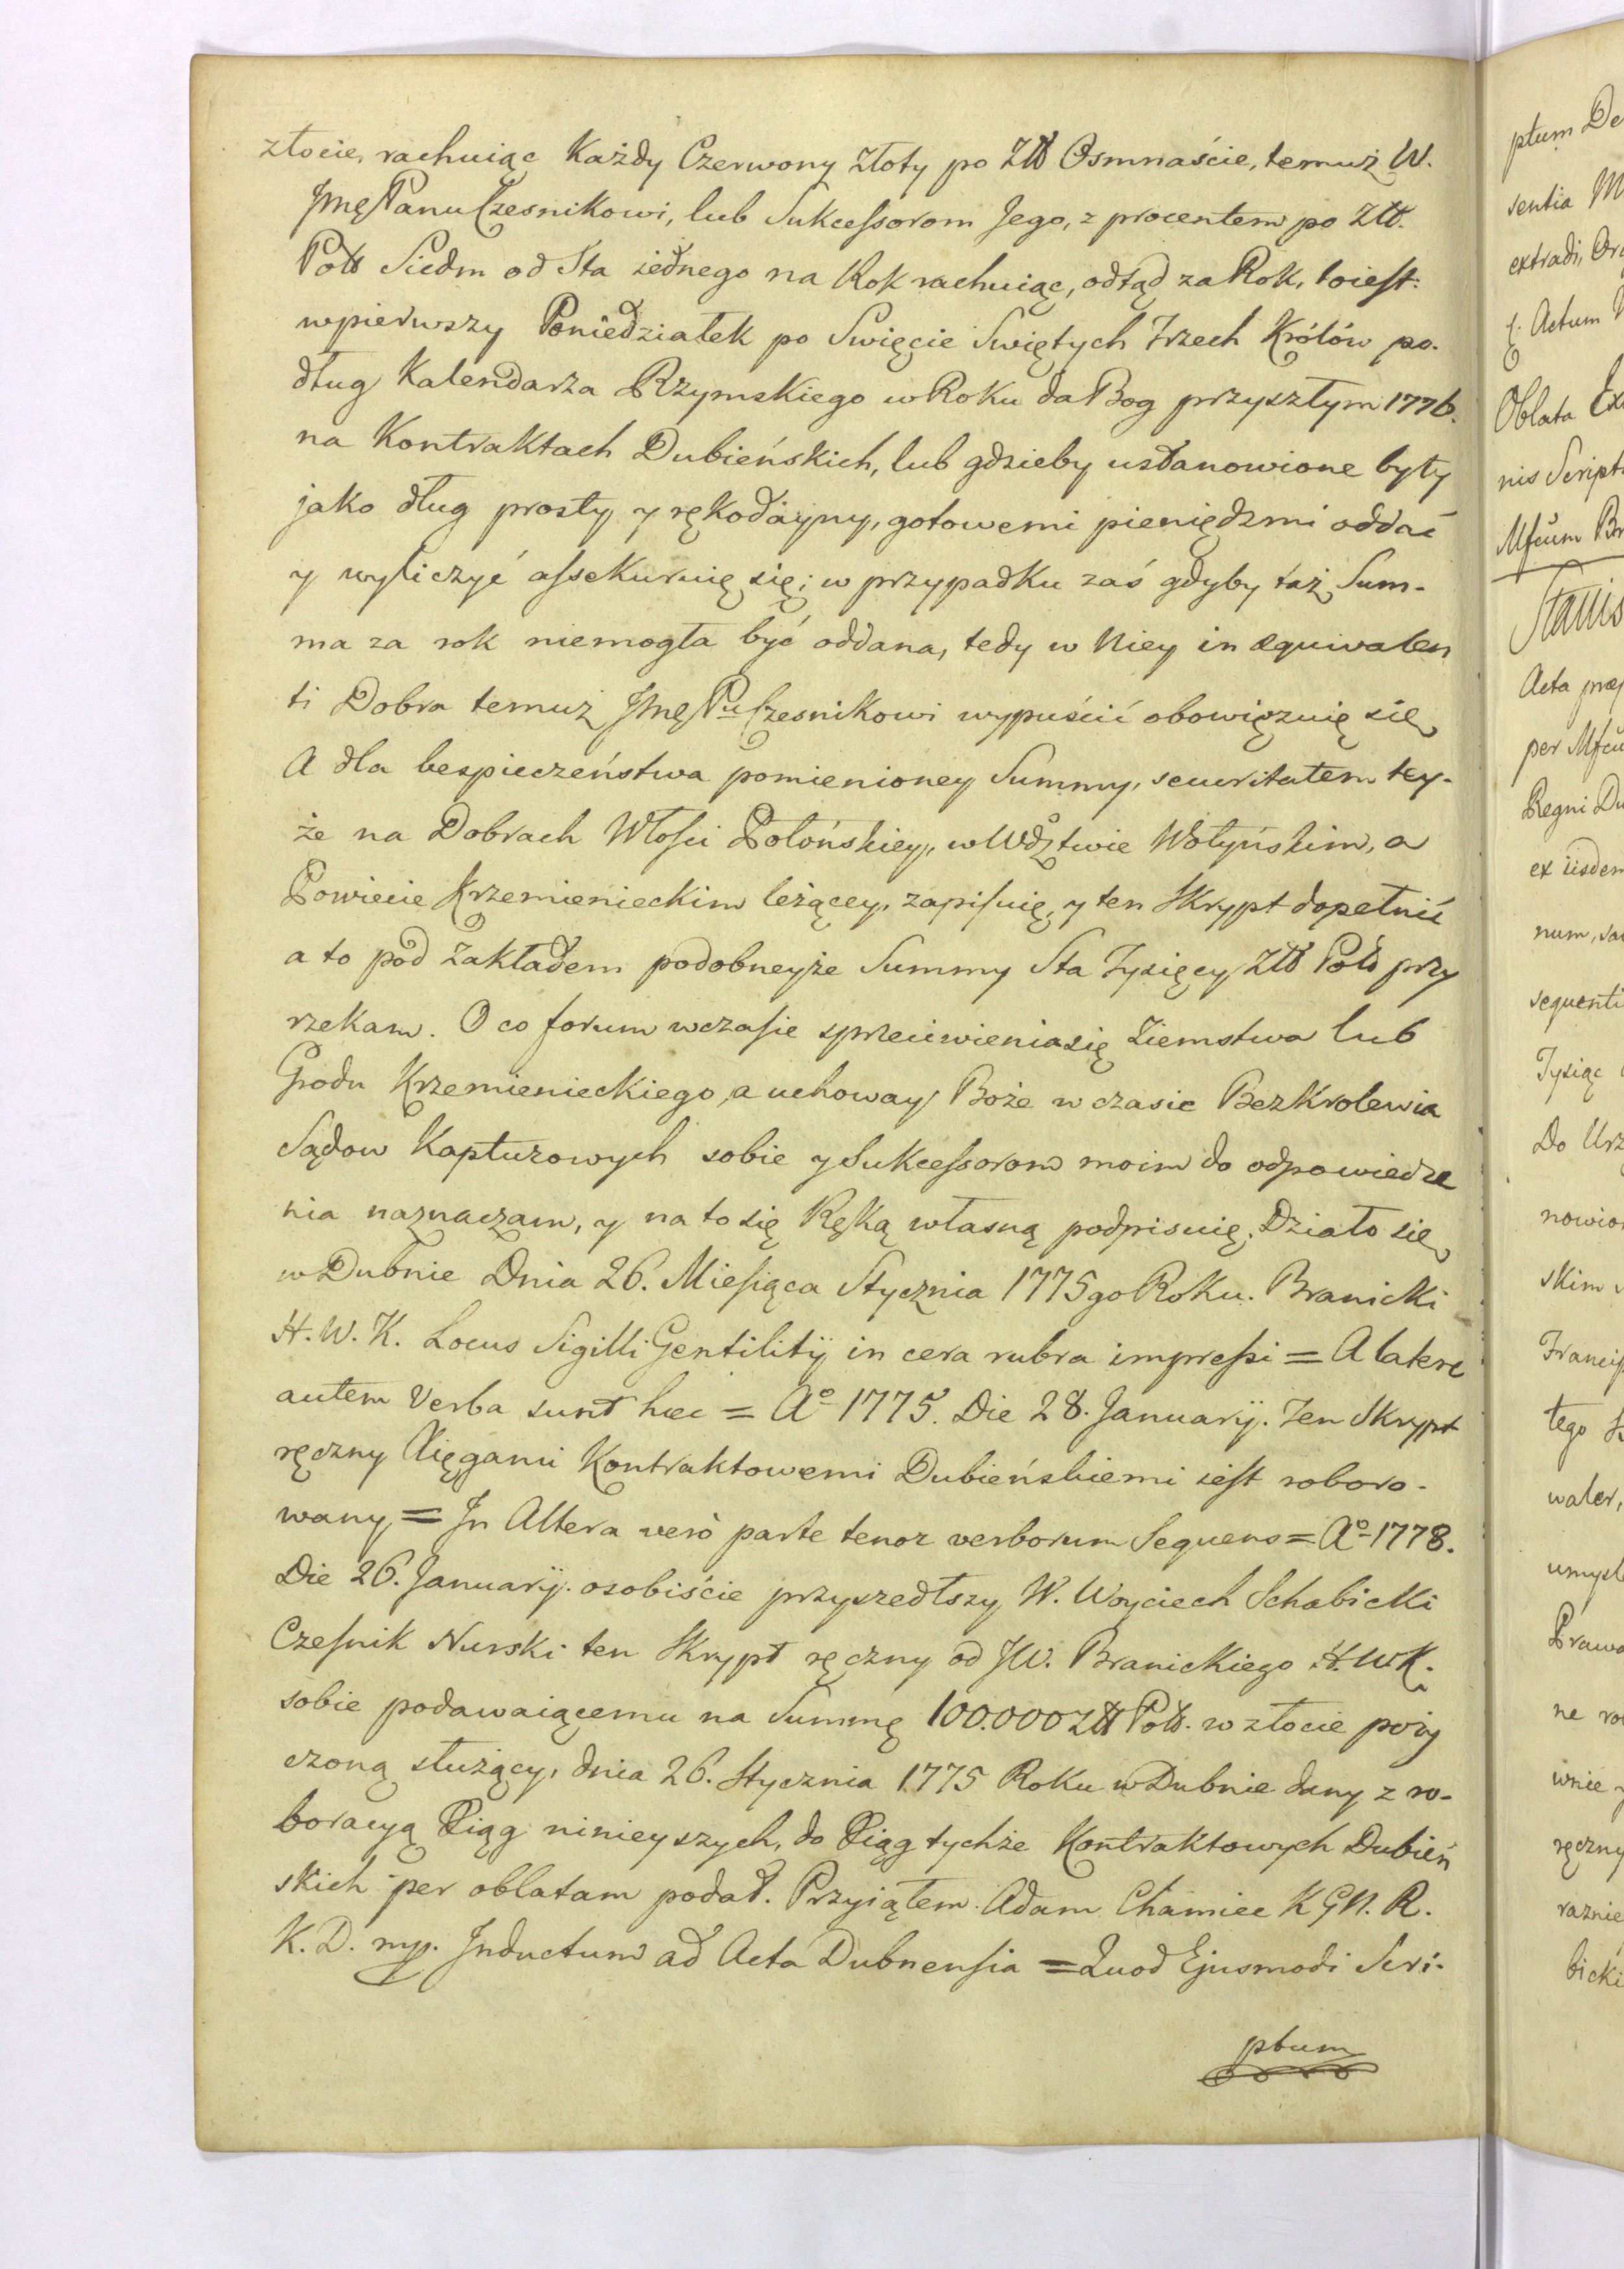 złocie, rachuiąc Każdy Czerwony złoty po Złł Osmnaście, temuż W.
Jmę Panu Czesnikowi, lub Sukcessorom Jego, z procentem po Złł.
Poll Siedm od Sta iednego na Rok rachuiąc, odtąd za Rok, toiest:
wpierwszy Poniedziałek po Swięcie Swiętych Trzech Królów po-
dług Kalendarza Rzymskiego w Roku da Bog przyszłym 1776.
na Kontraktach Dubieńskich, lub gdzieby ustanowione były
jako dług prosty y rękodayny, gotowemi pieniędzmi oddać
y wyliczyć assekuruię się; w przypadku zaś gdyby taż Sum-
ma za rok niemogła być oddana, tedy w Niey in æquivalen
ti Dobra temuż Jmę Pu Czesnikowi wypuścić obowięzuię się
A dla bespieczeństwa pomienioney Summy, securitatem tey-
że na Dobrach Włości Połońskiey, w Wdztwie Wołyńskim, a
Powiecie Krzemienieckim leżącey, zapisuię, y ten Skrypt dopełnić
a to pod zakładem podobneyże Summy Sta Tysięcy Złł Poll przy
rzekam. O co forum wczasie sprzeciwienia się Ziemstwa lub
Grodu Krzemienieckiego, a uchoway Boże w czasie Bezkrolewia
Sądow Kapturowych sobie y Sukcessorom moim do odpowiedze
nia naznaczam, y na to się Ręką własną podpisuię. Działo się
w Dubnie Dnia 26. Miesiąca Stycznia 1775go Roku. Branicki
H. W. K. Locus Sigilli Gentilitij in cera rubra impressi = A latere
autem Verba sunt hæc = Aº 1775. Die 28. Januarij. Ten Skrypt
ręczny Xięgami Kontraktowemi Dubieńskiemi iest roboro-
wany = In Altera verò parte tenor verborum Sequens = Aº 1778.
Die 26. Januarij. osobiście przyszedłszy W. Woyciech Schabicki
Czesnik Nurski ten Skrypt ręczny od JW. Branickiego H. W K.
sobie podawaiącemu na Summę 100.000 Złł Poll. w złocie poży
czoną służący, dnia 26. Stycznia 1775 Roku w Dubnie dany z ro-
boracyą Xiąg ninieyszych, do Xiąg tychże Kontraktowych Dubień
skich per oblatam podał. Przyiąłem. Adam Chamiec K G N. R.
K. D. mp. Inductum ad Acta Dubnensia = Quod Ejusmodi Scri-
ptum
ptum De
sentia M
extradi,
Actum
Oblata Ex
nis Script
Mfcum Br
Stanis
Acta præ
per Mfcu
Regni Du
ex iisdem
num, sa
sequenti
Tysiąc
Do Urz
nowio
skim
Francis
tego
waler,
umysl
Prawo
ne ro
wnie
ręczny
raznie
bicki